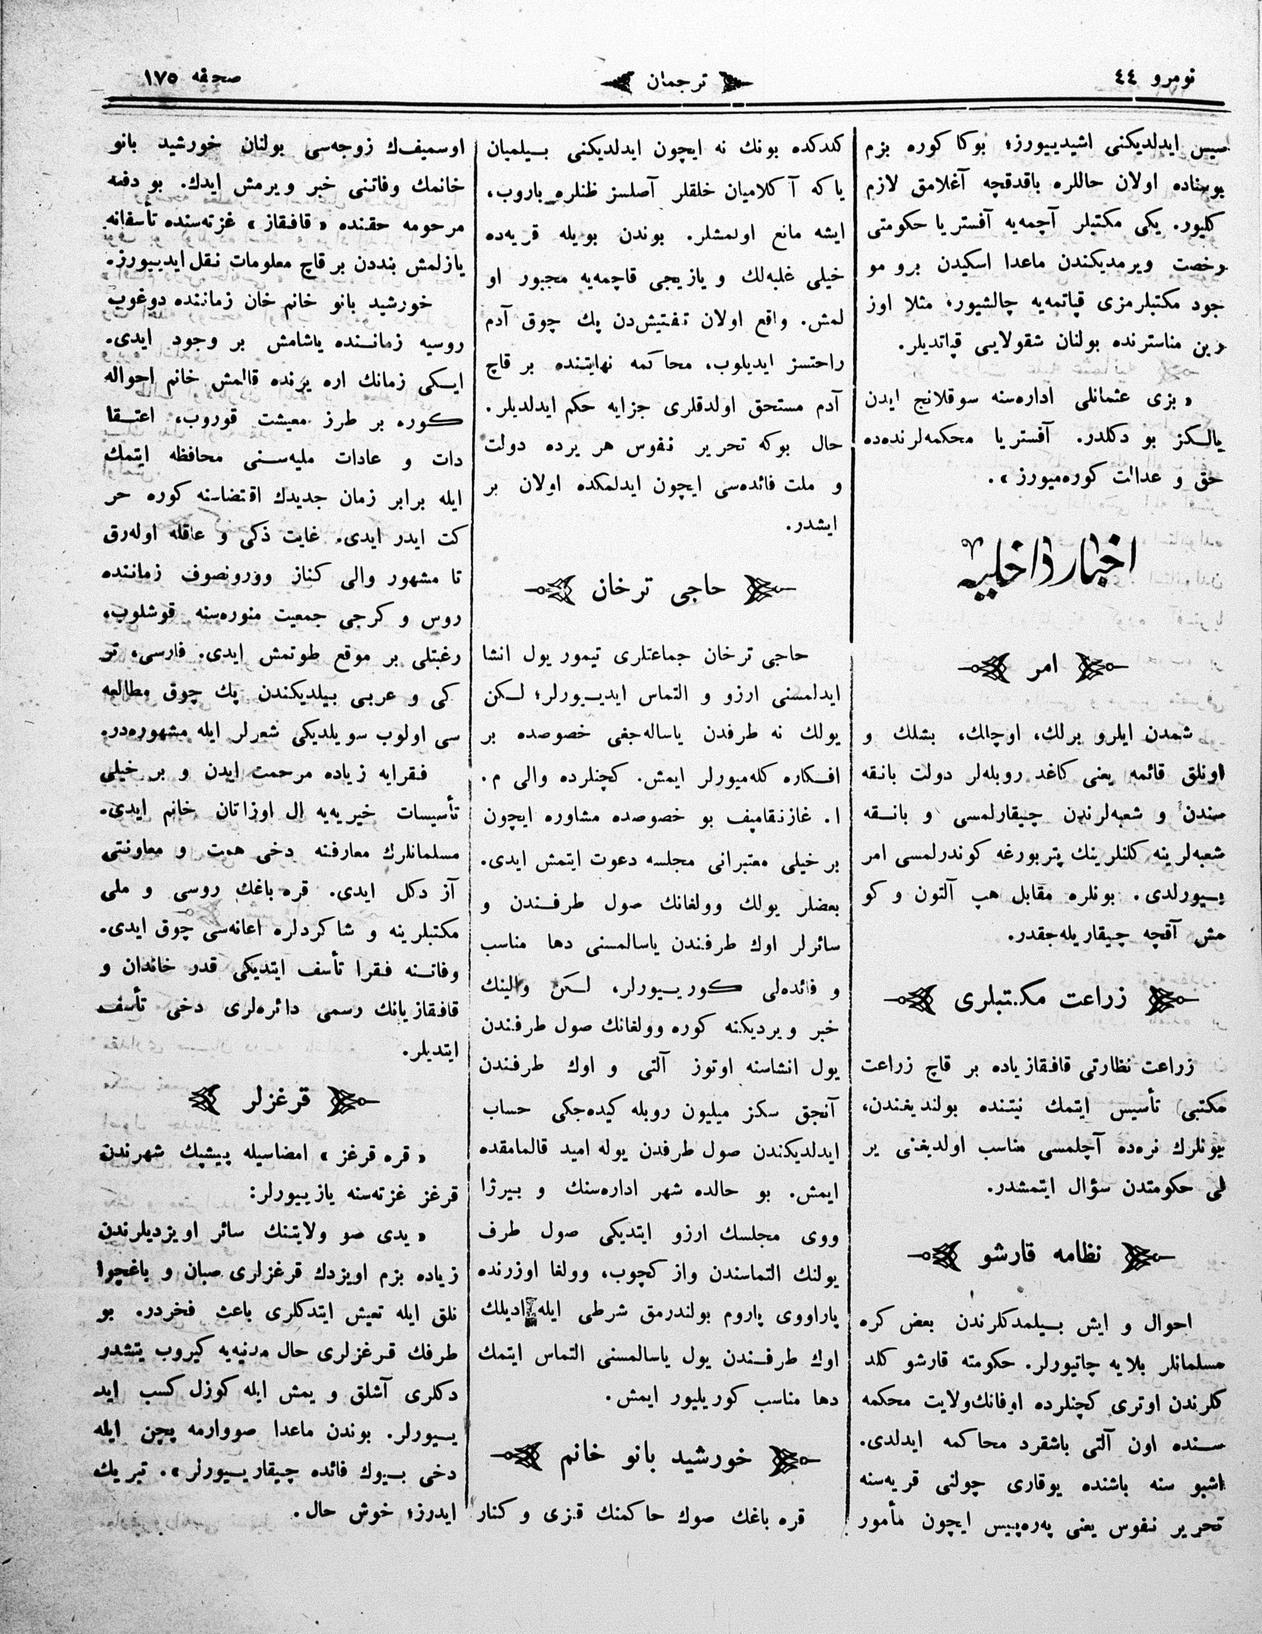 نومرو ٤٤
ترجمان
صحيفه ١٧٥
سيس ايدلديكنى اشيدييورز؛ بوكا كوره بزم
بوسناده اولان حاللره باقدقچه آغلامق لازم
كليور. يكى مكتبلر آچمه‌يه آفستريا حكومتى
رخصت ويرمديكندن ماعدا اسكيدن برو مو
جود مكتبلرمزى قپاتمه‌يه چالشيور، مثلا اوز
رين مناسترنده بولنان شقولايى قپاتديلر.
« بزى عثمانلى اداره‌سنه سوقلانج ايدن
يالكز بو دكلدر. آفستريا محكمه‌لرنده‌ده
حق و عدالت كوره‌ميورز ».
اخبار داخليه
امر
شمدن ايلرو برلك، اوچالك، بشلك و
اونلق قائمه يعنى كاغد روبله‌لر دولت بانقه
سندن و شعبه‌لرندن چيقارلمسى و بانقه
شعبه‌لرينه كلنلرينك پتربورغه كوندرلمسى امر
بيورلدى. بونلره مقابل هپ آلتون و كو
مش آقچه چيقاريله‌جقدر.
زراعت مكتبلرى
زراعت نظارتى قافقازياده بر قاچ زراعت
مكتبى تأسيس ايتمك نيتنده بولنديغندن،
بونلرك نره‌ده آچلمسى مناسب اولديغنى ير
لى حكومتدن سؤال ايتمشدر.
نظامه قارشو
احوال و ايش بيلمدكلرندن بعض كره
مسلمانلر بلايه چاتيورلر. حكومته قارشو كلد
كلرندن اوترى كچنلرده اوفانك ولايت محكمه
سنده اون آلتى باشقرد محاكمه ايدلدى.
اشبو سنه باشنده يوقارى چولنى قريه‌سنه
تحرير نفوس يعنى په‌ره‌پيس ايچون مأمور
كلدكده بونك نه ايچون ايدلديكنى بيلميان
ياكه آكلاميان خلقلر آصلسز ظنلره باروب،
ايشه مانع اولمشلر. بوندن بويله قريه‌ده
خيلى غلبه‌لك و يازيجى قاچمه‌يه مجبور او
لمش. واقع اولان تفتيش‌دن پك چوق آدم
راحتسز ايديلوب، محاكمه نهايتنده بر قاچ
آدم مستحق اولدقلرى جزايه حكم ايدلديلر.
حال بوكه تحرير نفوس هر يرده دولت
و ملت فائده‌سى ايچون ايدلمكده اولان بر
ايشدر.
حاجى ترخان
حاجى ترخان جماعتلرى تيمور يول انشا
ايدلمسنى ارزو و التماس ايديورلر؛ لكن
يولك نه طرفدن ياساله‌جغى خصوصده بر
افكاره كله‌ميورلر ايمش. كچنلرده والى م.
ا. غازنقامپف بو خصوصده مشاوره ايچون
بر خيلى معتبرانى مجلسه دعوت ايتمش ايدى.
بعضلر يولك وولغانك صول طرفندن و
سائرلر اوك طرفندن ياسالمسنى دها مناسب
و فائده‌لى كورييورلر، لكن والينك
خبر ويرديكنه كوره وولغانك صول طرفندن
يول انشاسنه اوتوز آلتى و اوك طرفندن
آنجق سكز ميليون روبله كيده‌جكى حساب
ايدلديكندن صول طرفدن يوله اميد قالمامقده
ايمش. بو حالده شهر اداره‌سنك و بيرژا
ووى مجلسك ارزو ايتديكى صول طرف
يولنك التماسندن واز كچوب، وولغا اوزرنده
پاراووى پاروم بولندرمق شرطى ايله
اوك طرفندن يول ياسالمسنى التماس ايتمك
دها مناسب كوريليور ايمش.
خورشيد بانو خانم
قره باغك صوك حاكمنك قزى و كناز
اوسميف‌ك زوجه‌سى بولنان خورشيد بانو
خانمك وفاتنى خبر ويرمش ايدك. بو دفعه
مرحومه حقنده « قافقاز » غزته‌سنده تأسفانه
يازلمش بنددن بر قاچ معلومات نقل ايدييورز.
خورشيد بانو خانم خان زماننده دوغوب
روسيه زماننده ياشامش بر وجود ايدى.
ايكى زمانك اره يرنده قالمش خانم احواله
كوره بر طرز معيشت قوروب، اعتقا
دات و عادات مليه‌سنى محافظه ايتمك
ايله برابر زمان جديدك اقتضاسنه كوره حر
كت ايدر ايدى. غايت ذكى و عاقله اوله‌رق
تا مشهور والى كناز وورونصوف زماننده
روس و كرجى جمعيت منوره‌سنه قوشلوب،
رغبتلى بر موقع طوتمش ايدى. فارسى، تر
كى و عربى بيلديكندن پك چوق مطالعه
سى اولوب سويلديكى شعرلر ايله مشهوره‌در.
فقرايه زياده مرحمت ايدن و بر خيلى
تأسيسات خيريه‌يه ال اوزاتان خانم ايدى.
مسلمانلرك معارفنه دخى همت و معاونتى
آز دكل ايدى. قره باغك روسى و ملى
مكتبلرينه و شاكردلره اعانه‌سى چوق ايدى.
وفاتنه فقرا تأسف ايتديكى قدر خاندان و
قافقازيانك رسمى دائره‌لرى دخى تأسف
ايتديلر.
قرغزلر
« قره قرغز » امضاسيله پيشپك شهرندن
قرغز غزته‌سنه يازييورلر:
« يدى صو ولايتنك سائر اويزديلرندن
زياده بزم اويزدك قرغزلرى صبان و باغچوا
نلق ايله تعيش ايتدكلرى باعث فخردر. بو
طرفك قرغزلرى حال مدنيه‌يه كيروب يتشدر
دكلرى آشلق و يمش ايله كوزل كسب ايد
يورلر. بوندن ماعدا صووارمه پچن ايله
دخى بيوك فائده چيقارييورلر ». تبريك
ايدرز؛ خوش حال.